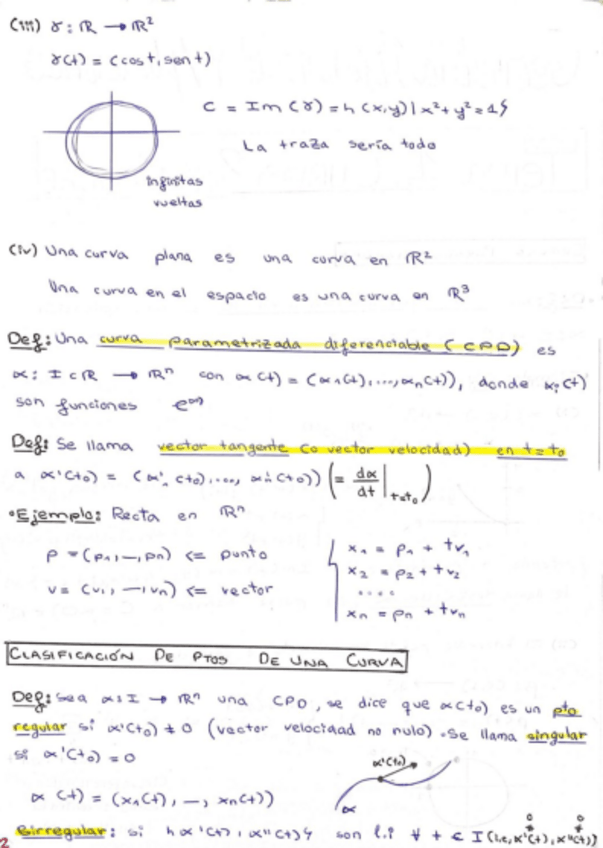 (iii) γ: ℝ → ℝ²
γ(t) = (cos t, sen t)
C = Im(γ) = {(x,y) | x² + y² = 1}
La traza sería todo
infinitas
vueltas
(iv) Una curva plana es una curva en ℝ²
Una curva en el espacio es una curva en ℝ³
Def: Una curva parametrizada diferenciable (CPD) es
α: I ⊂ ℝ → ℝⁿ con α(t) = (α₁(t), ..., αₙ(t)), donde αᵢ(t)
son funciones C^∞
Def: Se llama vector tangente (o vector velocidad) en t = t₀
a α'(t₀) = (α'₁(t₀), ..., α'ₙ(t₀)) (= dα/dt |t=t₀)
•Ejemplo: Recta en ℝⁿ
p = (p₁, —, pₙ) <= punto
v = (v₁, —, vₙ) <= vector
x₁ = p₁ + tv₁
x₂ = p₂ + tv₂
....
xₙ = pₙ + tvₙ
CLASIFICACIÓN DE PTOS DE UNA CURVA
Def: Sea α: I → ℝⁿ una CPD, se dice que α(t₀) es un pto
regular si α'(t₀) ≠ 0 (vector velocidad no nulo). Se llama singular
si α'(t₀) = 0
α'(t₀)
α
α(t) = (x₁(t), —, xₙ(t))
Birregular: si {α'(t), α''(t)} son l.i ∀ t ∈ I (i.e, α'(t), α''(t))
0 0
2